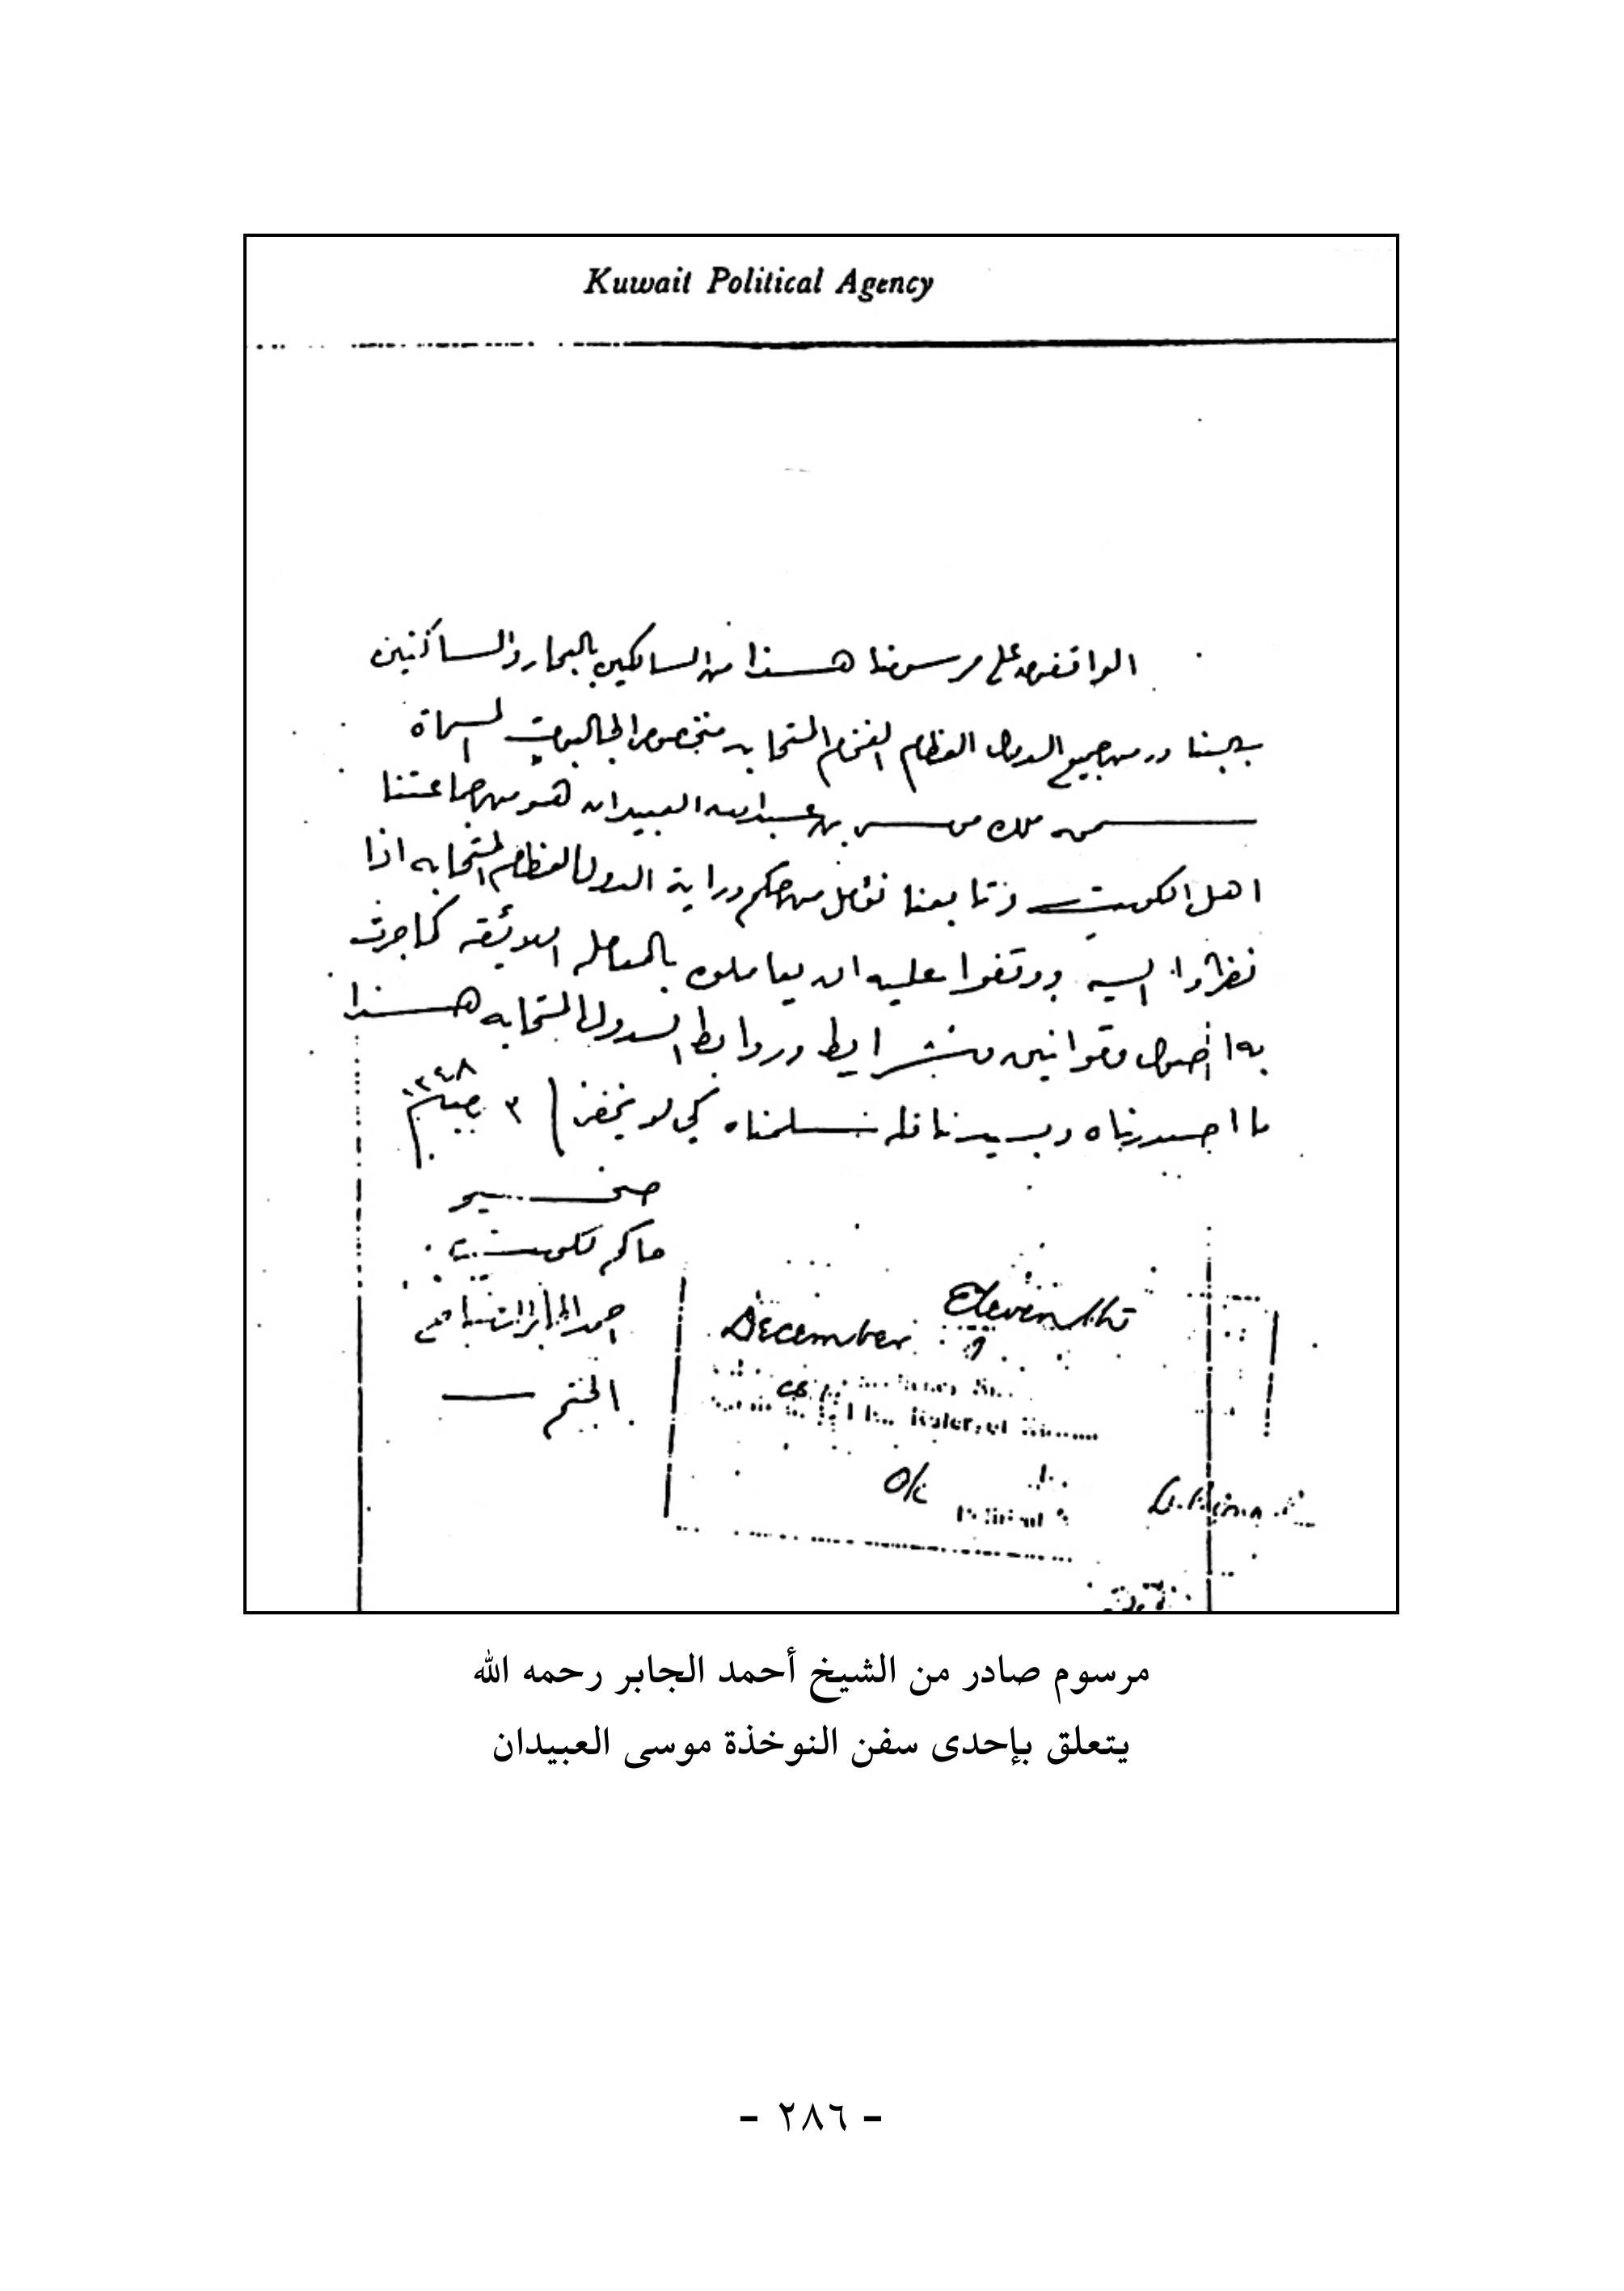 Kuwait Political Agency
الواقفين على مرسومنا هذا من السالكين بالبحار والساكنين
جميع الدول العظام الفخام المتحابه بخصوص الجالبوت المسماة
ملك موسى بن عبدالله العبيدان هو من جماعتنا
اهل الكويت وتابعنا نؤمل من حكم وراية الدول العظام المتحابه اذا
نظروا اليه ووقفوا عليه ان يعاملوه بالمعامله اللائقه كما جرت
به اصول وقوانين وشرايط وروابط الدول المتحابه هذا
ما اصدرناه وبيد ناقله سلمناه كي لا يخفى ٣ ١٣٤٨
صح
حاكم لكويت
احمد الجابر الصباح
الختم
December Eleventh
Ruler, of
مرسوم صادر من الشيخ أحمد الجابر رحمه الله
يتعلق بإحدى سفن النوخذة موسى العبيدان
- ٢٨٦ -